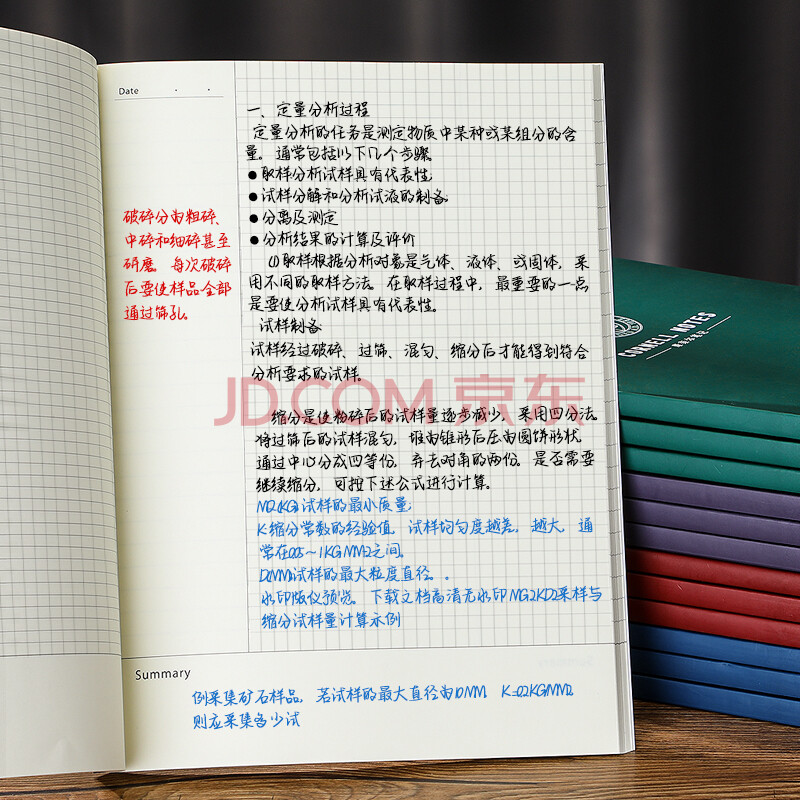 Date
一、定量分析过程
定量分析的任务是测定物质中某种或某组分的含
量。通常包括以下几个步骤
●取样分析试样具有代表性
●试样分解和分析试液的制备
●分离及测定
●分析结果的计算及评价
(1)取样根据分析对象是气体、液体、或固体，采
用不同的取样方法。在取样过程中，最重要的一点
是要使分析试样具有代表性。
试样制备
试样经过破碎、过筛、混匀、缩分后才能得到符合
分析要求的试样。
缩分是使粉碎后的试样量逐步减少，采用四分法。
将过筛后的试样混匀，堆为锥形后压为圆饼形状，
通过中心分成四等份，弃去对角的两份。是否需要
继续缩分，可按下述公式进行计算。
试样的最小质量；
K缩分常数的经验值，试样均匀度越差，越大，通
常在0.05~1KG/MM2之间。
试样的最大粒度直径。。
水印版仅预览。下载文档高清无水印MG2KD2采样与
缩分试样量计算示例
破碎分为粗碎、
中碎和细碎甚至
研磨。每次破碎
后要使样品全部
通过筛孔。
Summary
例采集矿石样品，若试样的最大直径为10MM，K=0.2KG/MM2，
则应采集多少试
CORNELL NOTES
JD.COM 京东